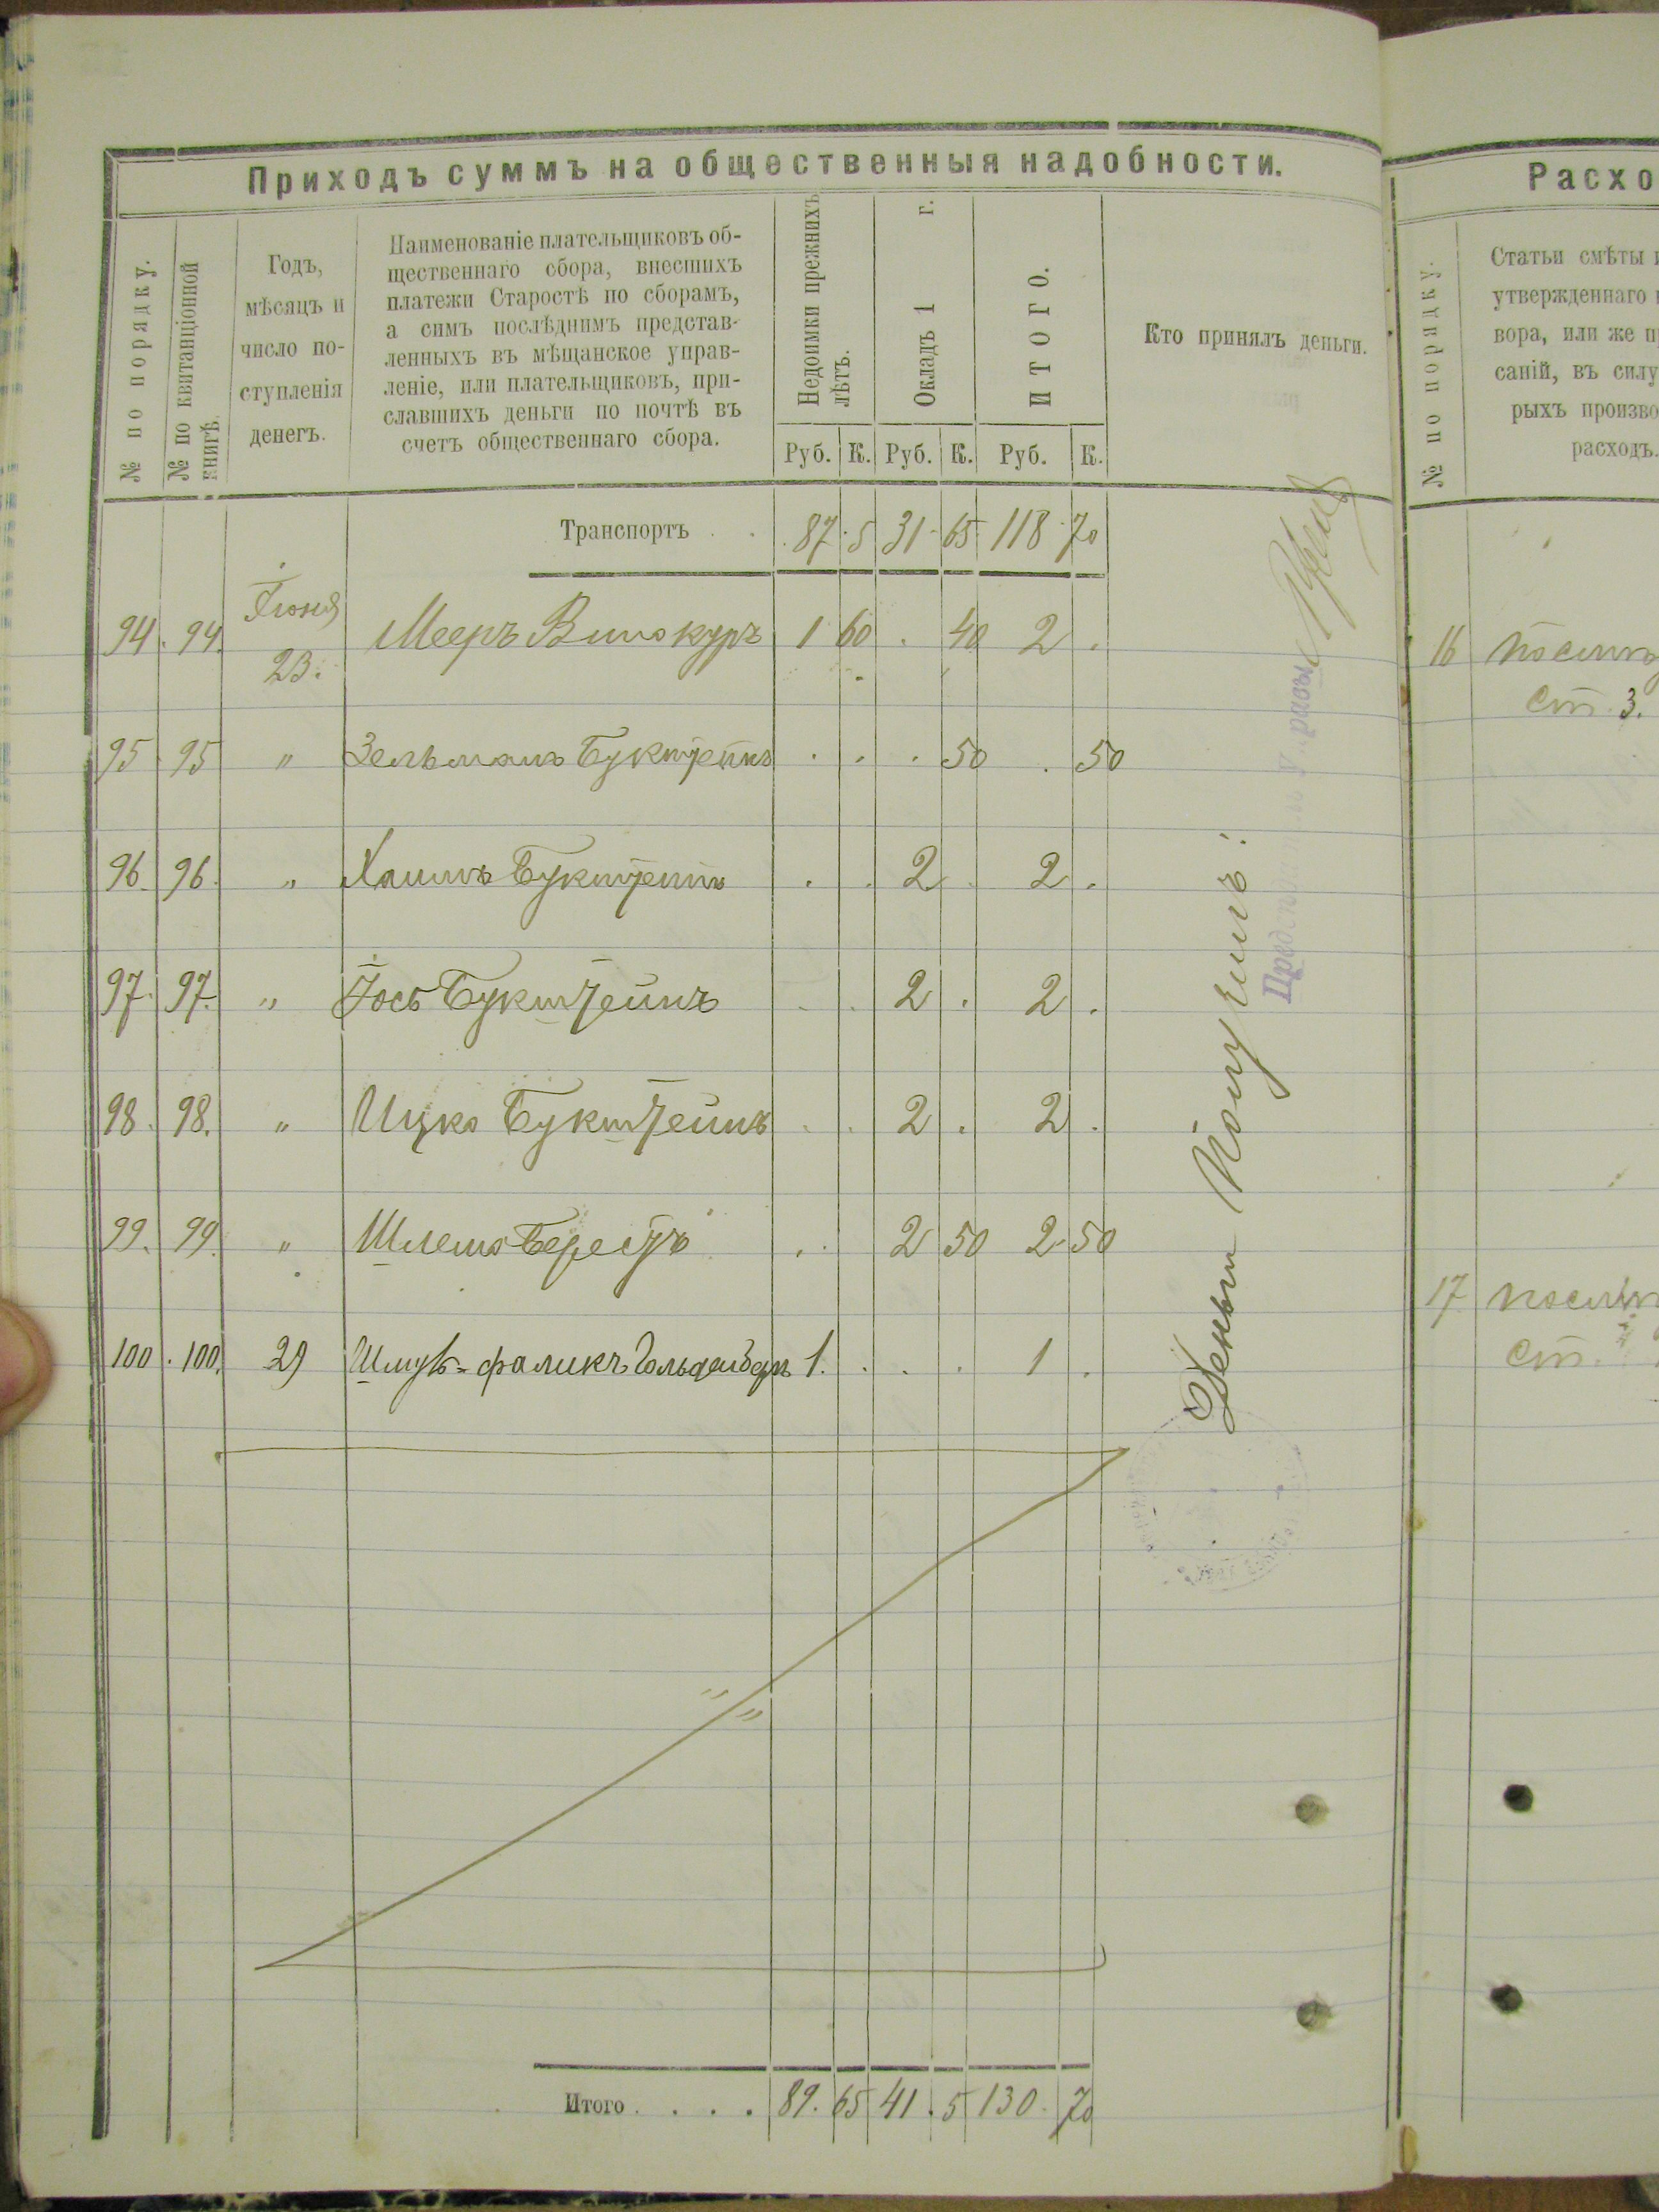 Приходъ суммъ на общественныя надобности.
№ по порядку.
№ по квитанціонной
книгѣ.
Годъ,
мѣсяцъ и
число по-
ступленія
денегъ.
Наименованіе плательщиковъ об-
щественнаго сбора, внесшихъ
платежи Старостѣ по сборамъ,
а симъ послѣднимъ представ-
ленныхъ въ мѣщанское управ-
леніе, или плательщиковъ, при-
славшихъ деньги по почтѣ въ
счетъ общественнаго сбора.
Недоимки прежнихъ
лѣтъ.
Окладъ 1 г.
ИТОГО.
Кто принялъ деньги.
Руб. К. Руб. К. Руб. К.
Транспортъ . . 87 5 31 65 118 70
94 94 Іюня 23. Мееръ Винокуръ 1 60 . 40 2 .
95 95 " Зельманъ Букштейнъ . . . 50 . 50
96 96 " Хаимъ Букштейнъ . . 2 . 2 .
97 97 " Іось Букштейнъ . . 2 . 2 .
98 98 " Ицко Букштейнъ . . 2 . 2 .
99 99 " Шлема Берестъ . . 2 50 2 50
100 100 29 Шмуль-фаликъ Гольденберъ 1 . . . 1 .
Деньги Получилъ:
Итого . . . . 89 65 41 5 130 70
Расхо
№ по порядку.
Статьи смѣты
утвержденнаго
вора, или же пр
саній, въ силу
рыхъ произво
расходъ.
16
ст. 3.
17
ст.